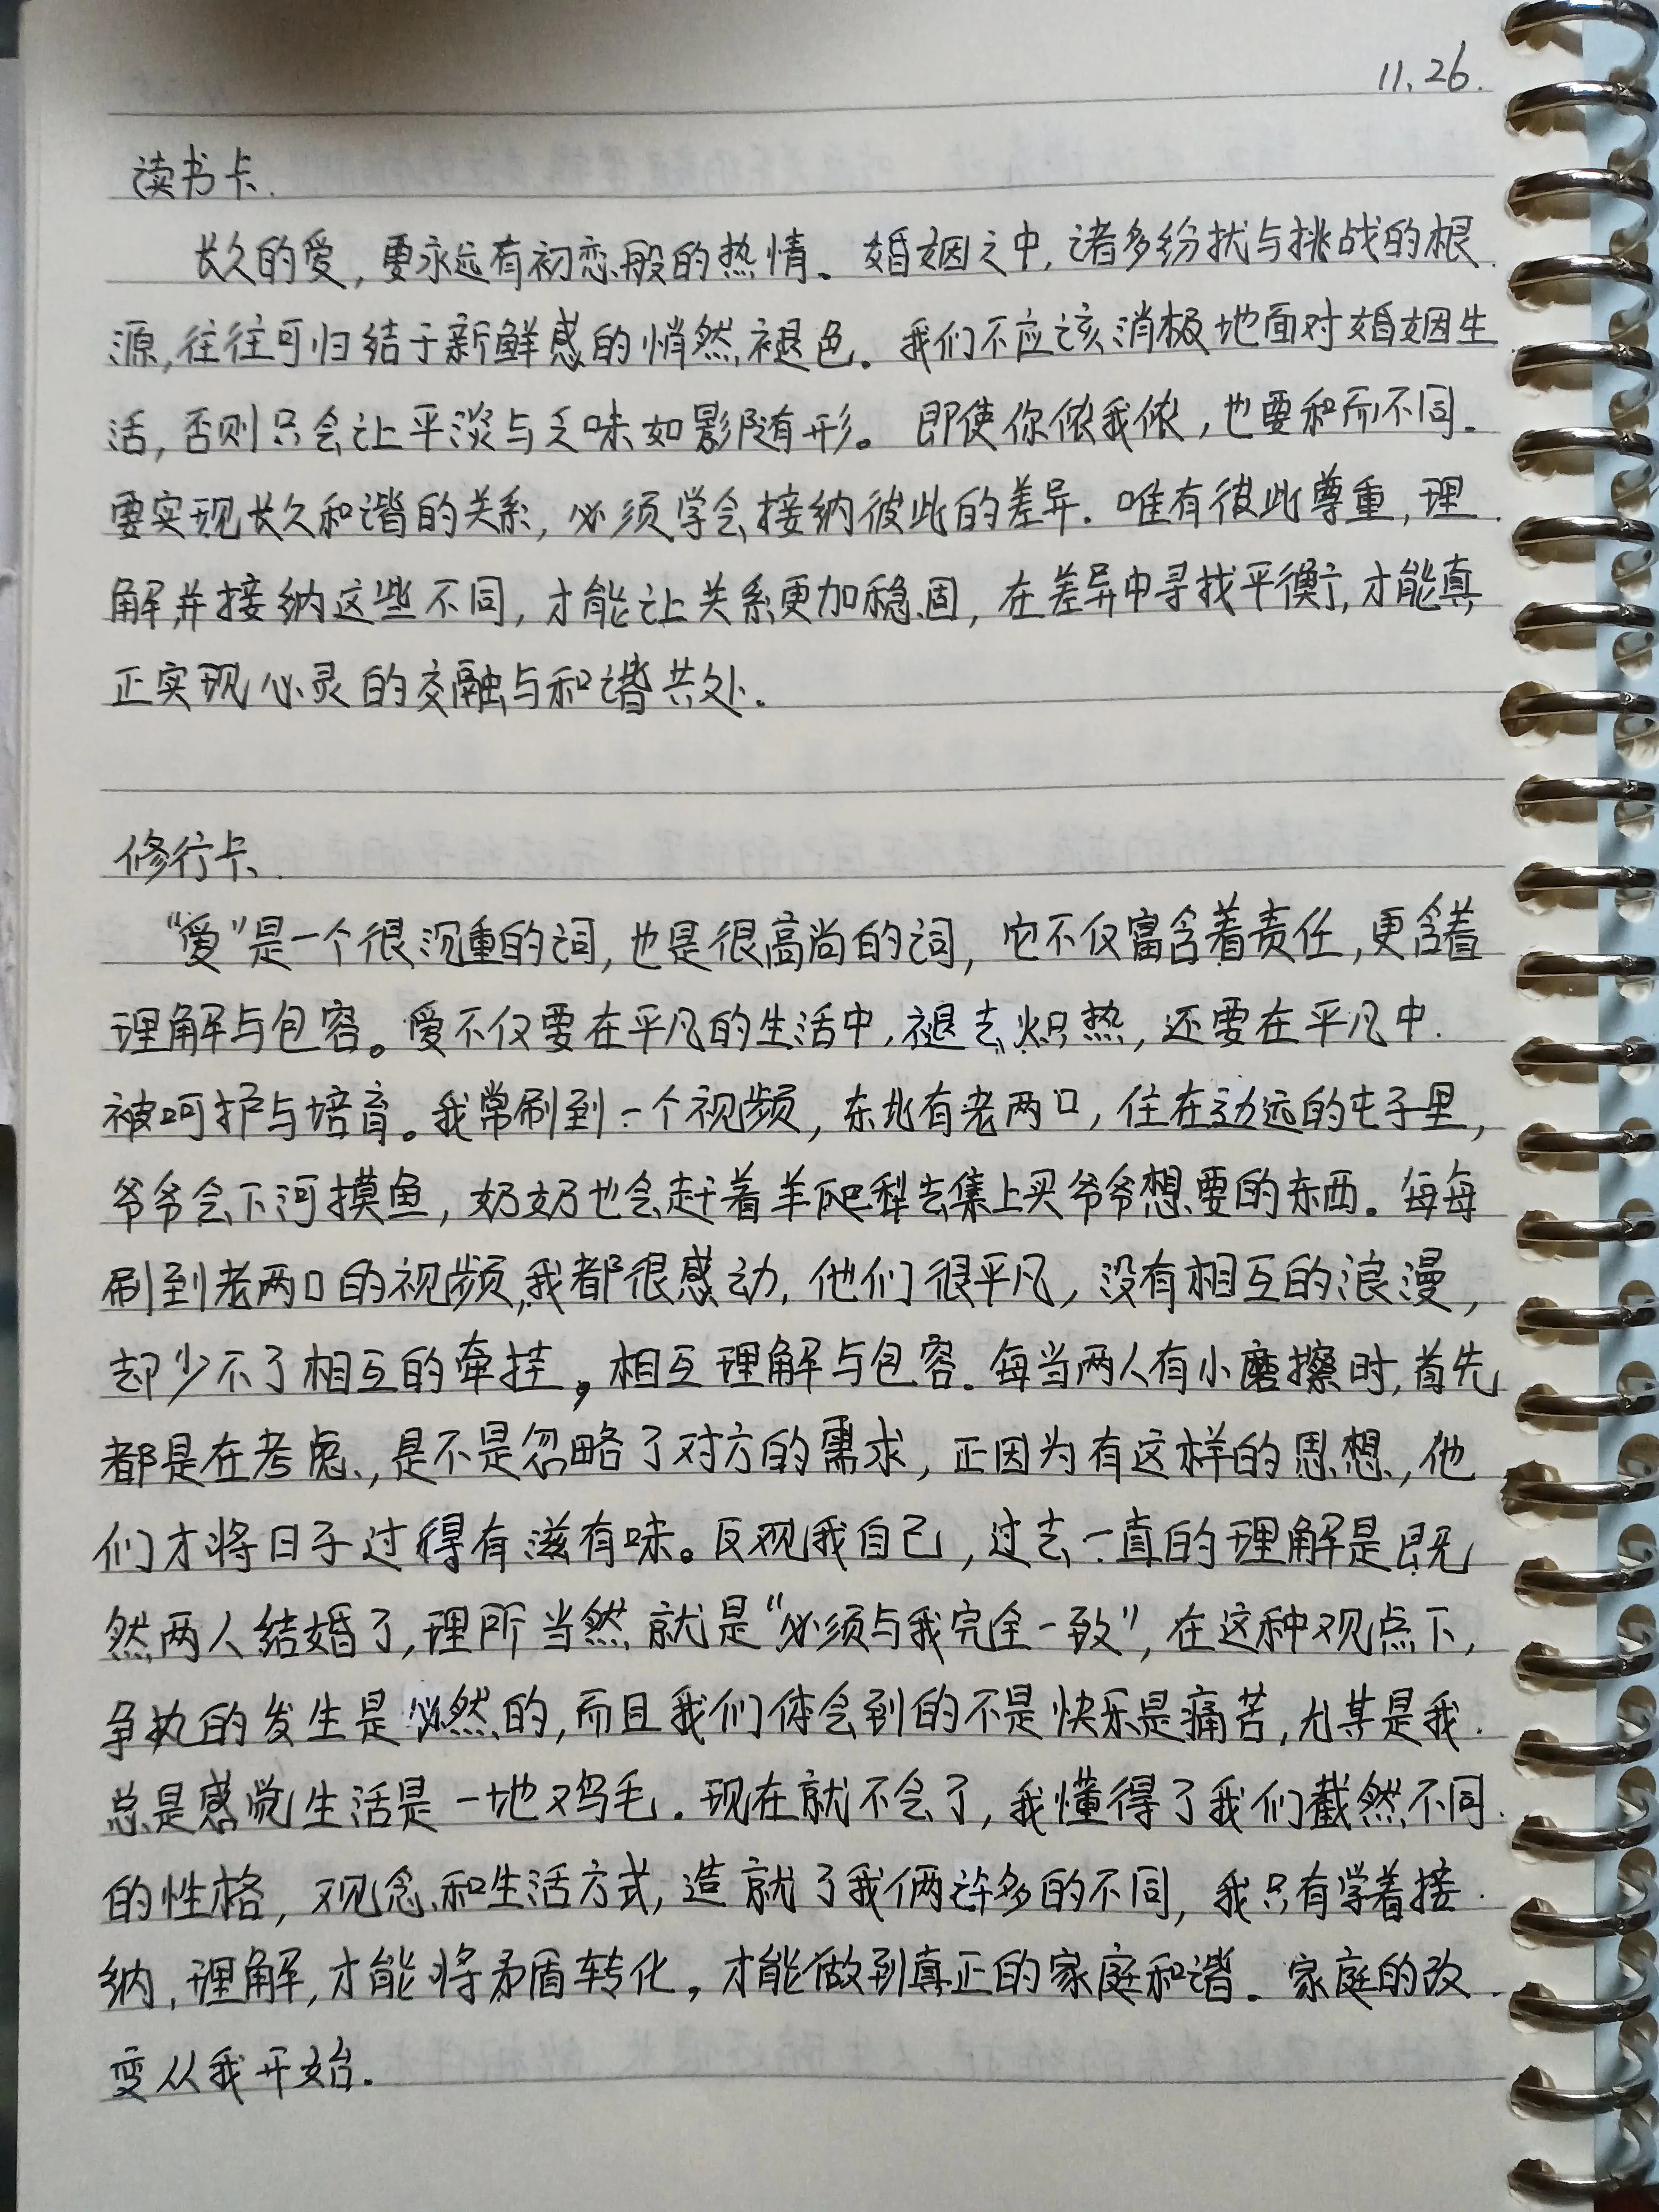 11.26.
读书卡.
长久的爱,要永远有初恋般的热情。婚姻之中,诸多纷扰与挑战的根
源,往往可归结于新鲜感的悄然褪色。我们不应该消极地面对婚姻生
活,否则只会让平淡与乏味如影随形。即使你侬我侬,也要和而不同。
要实现长久和谐的关系,必须学会接纳彼此的差异.唯有彼此尊重,理
解并接纳这些不同,才能让关系更加稳固,在差异中寻找平衡,才能真
正实现心灵的交融与和谐共处.
修行卡.
“爱”是一个很沉重的词,也是很高尚的词,它不仅富含着责任,更含着
理解与包容。爱不仅要在平凡的生活中,褪去炽热,还要在平凡中.
被呵护与培育。我常刷到一个视频,东北有老两口,住在边远的屯子里,
爷爷会下河摸鱼,奶奶也会赶着羊爬犁去集上买爷爷想要的东西。每每
刷到老两口的视频,我都很感动,他们很平凡,没有相互的浪漫,
却少不了相互的牵挂,相互理解与包容.每当两人有小磨擦时,首先
都是在考虑,是不是忽略了对方的需求,正因为有这样的思想,他
们才将日子过得有滋有味。反观我自己,过去一直的理解是既
然两人结婚了,理所当然就是“必须与我完全一致”,在这种观点下,
争执的发生是必然的,而且我们体会到的不是快乐是痛苦,尤其是我.
总是感觉生活是一地鸡毛.现在就不会了,我懂得了我们截然不同.
的性格,观念和生活方式,造就了我俩许多的不同,我只有学着接.
纳,理解,才能将矛盾转化,才能做到真正的家庭和谐.家庭的改
变从我开始.